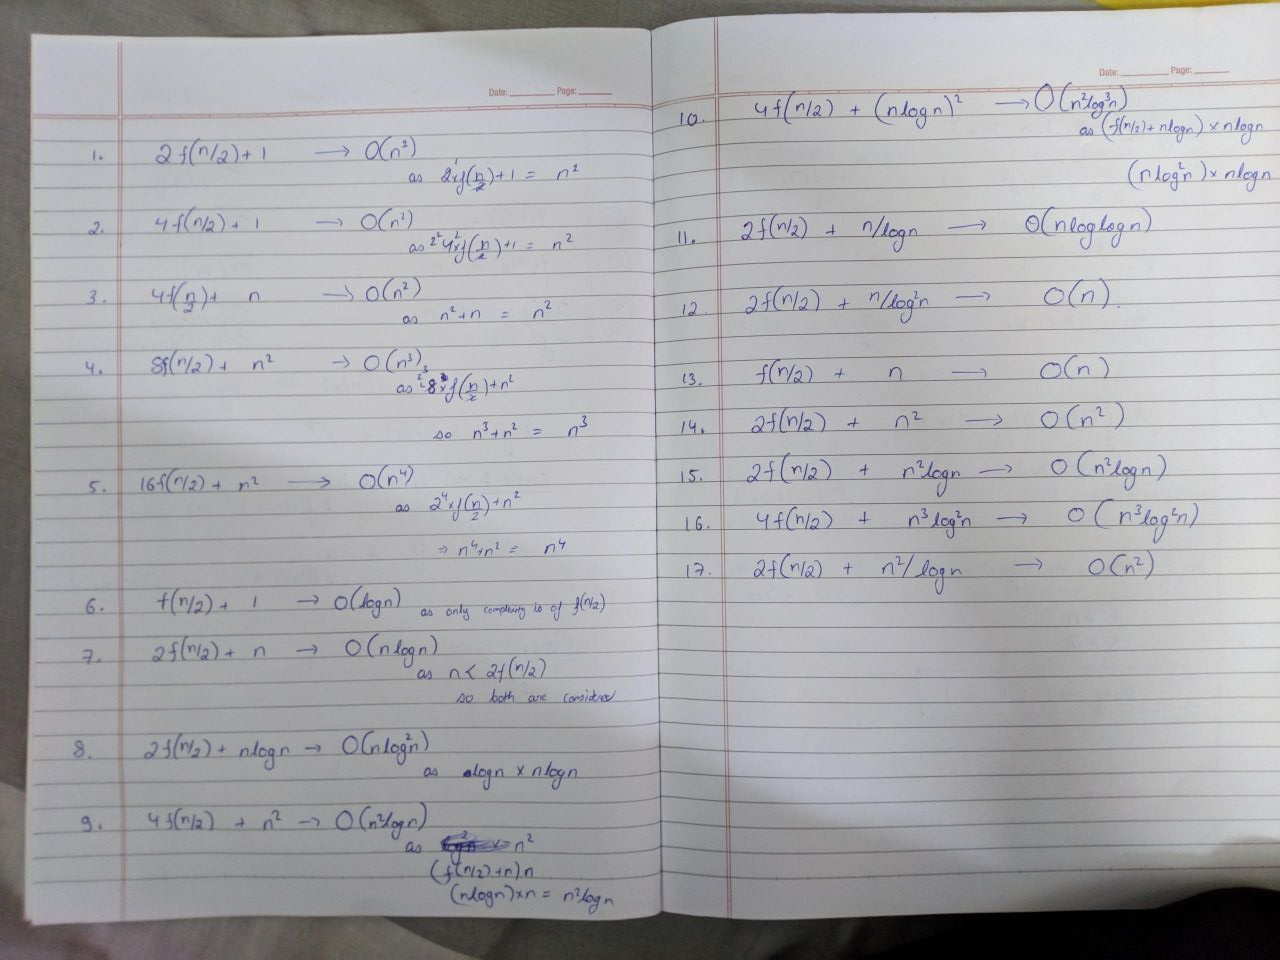 Date: ______ Page: ______
1. 2f(n/2) + 1 → O(n¹)
as 2¹×f(n/2)+1 = n¹
2. 4f(n/2) + 1 → O(n²)
as 2² 4²×f(n/2)+1 = n²
3. 4f(n/2) + n → O(n²)
as n²+n = n²
4. 8f(n/2) + n² → O(n³)
as 2³ 8×f(n/2)+n²
so n³+n² = n³
5. 16f(n/2) + n² → O(n⁴)
as 2⁴×f(n/2)+n²
⇒ n⁴+n² = n⁴
6. f(n/2) + 1 → O(logn) as only complexity is of f(n/2)
7. 2f(n/2) + n → O(nlogn)
as n < 2f(n/2)
so both are considered
8. 2f(n/2) + nlogn → O(nlog²n)
as logn × nlogn
9. 4f(n/2) + n² → O(n²logn)
as n²
(f(n/2)+n)n
(nlogn)×n = n²logn
Date: ______ Page: ______
10. 4f(n/2) + (nlogn)² → O(n²log³n)
as (f(n/2)+nlogn) × nlogn
(nlog²n) × nlogn
11. 2f(n/2) + n/logn → O(nloglogn)
12. 2f(n/2) + n/log²n → O(n).
13. f(n/2) + n → O(n)
14. 2f(n/2) + n² → O(n²)
15. 2f(n/2) + n²logn → O(n²logn)
16. 4f(n/2) + n³log²n → O(n³log²n)
17. 2f(n/2) + n²/logn → O(n²)